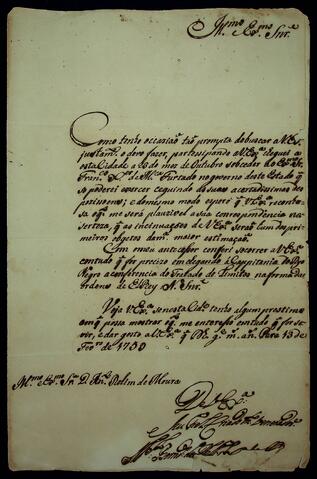 Illmo. e Exmo. Snr.
Como tenho occazião tão prompta de buscar a V. Ex.
justam.te o devo fazer, partesipando a V. Ex.ª cheguei a
esta Cidade a de mes de Outubro soceder ao Exmo. Sr.
Franco. X.er de Mça. Furtado no governo deste Estado q
so poderei exercer seguindo as suas acertadissimas
e do mesmo modo espero q V. Ex.ª reconheça
q me será plauzivel a sua correspondencia na
serteza, q as incinuaçoes de V. Ex.ª serão hum dos pri
meiros objetos da m.ª maior estimação.
Com o meu antecessor conferi escrever a V. Ex.ª
contudo q for precizo em chegando á Cappitania do Rio
Negro a conferencia do Tratado de Limites na forma das
ordens de ElRey N. Snr.
Veja V. Ex.ª se nesta Cid.e tenho algum prestimo
em q possa mostrar q me interesso em tudo q for ser
vir, e dar gosto a V. Ex.ª q Ds. g. m. an. Pará 15 de
Fevro. de 1759
Illmo. e Exmo. Snr. D. Anto. Rolim de Moura
De V. Ex.ª